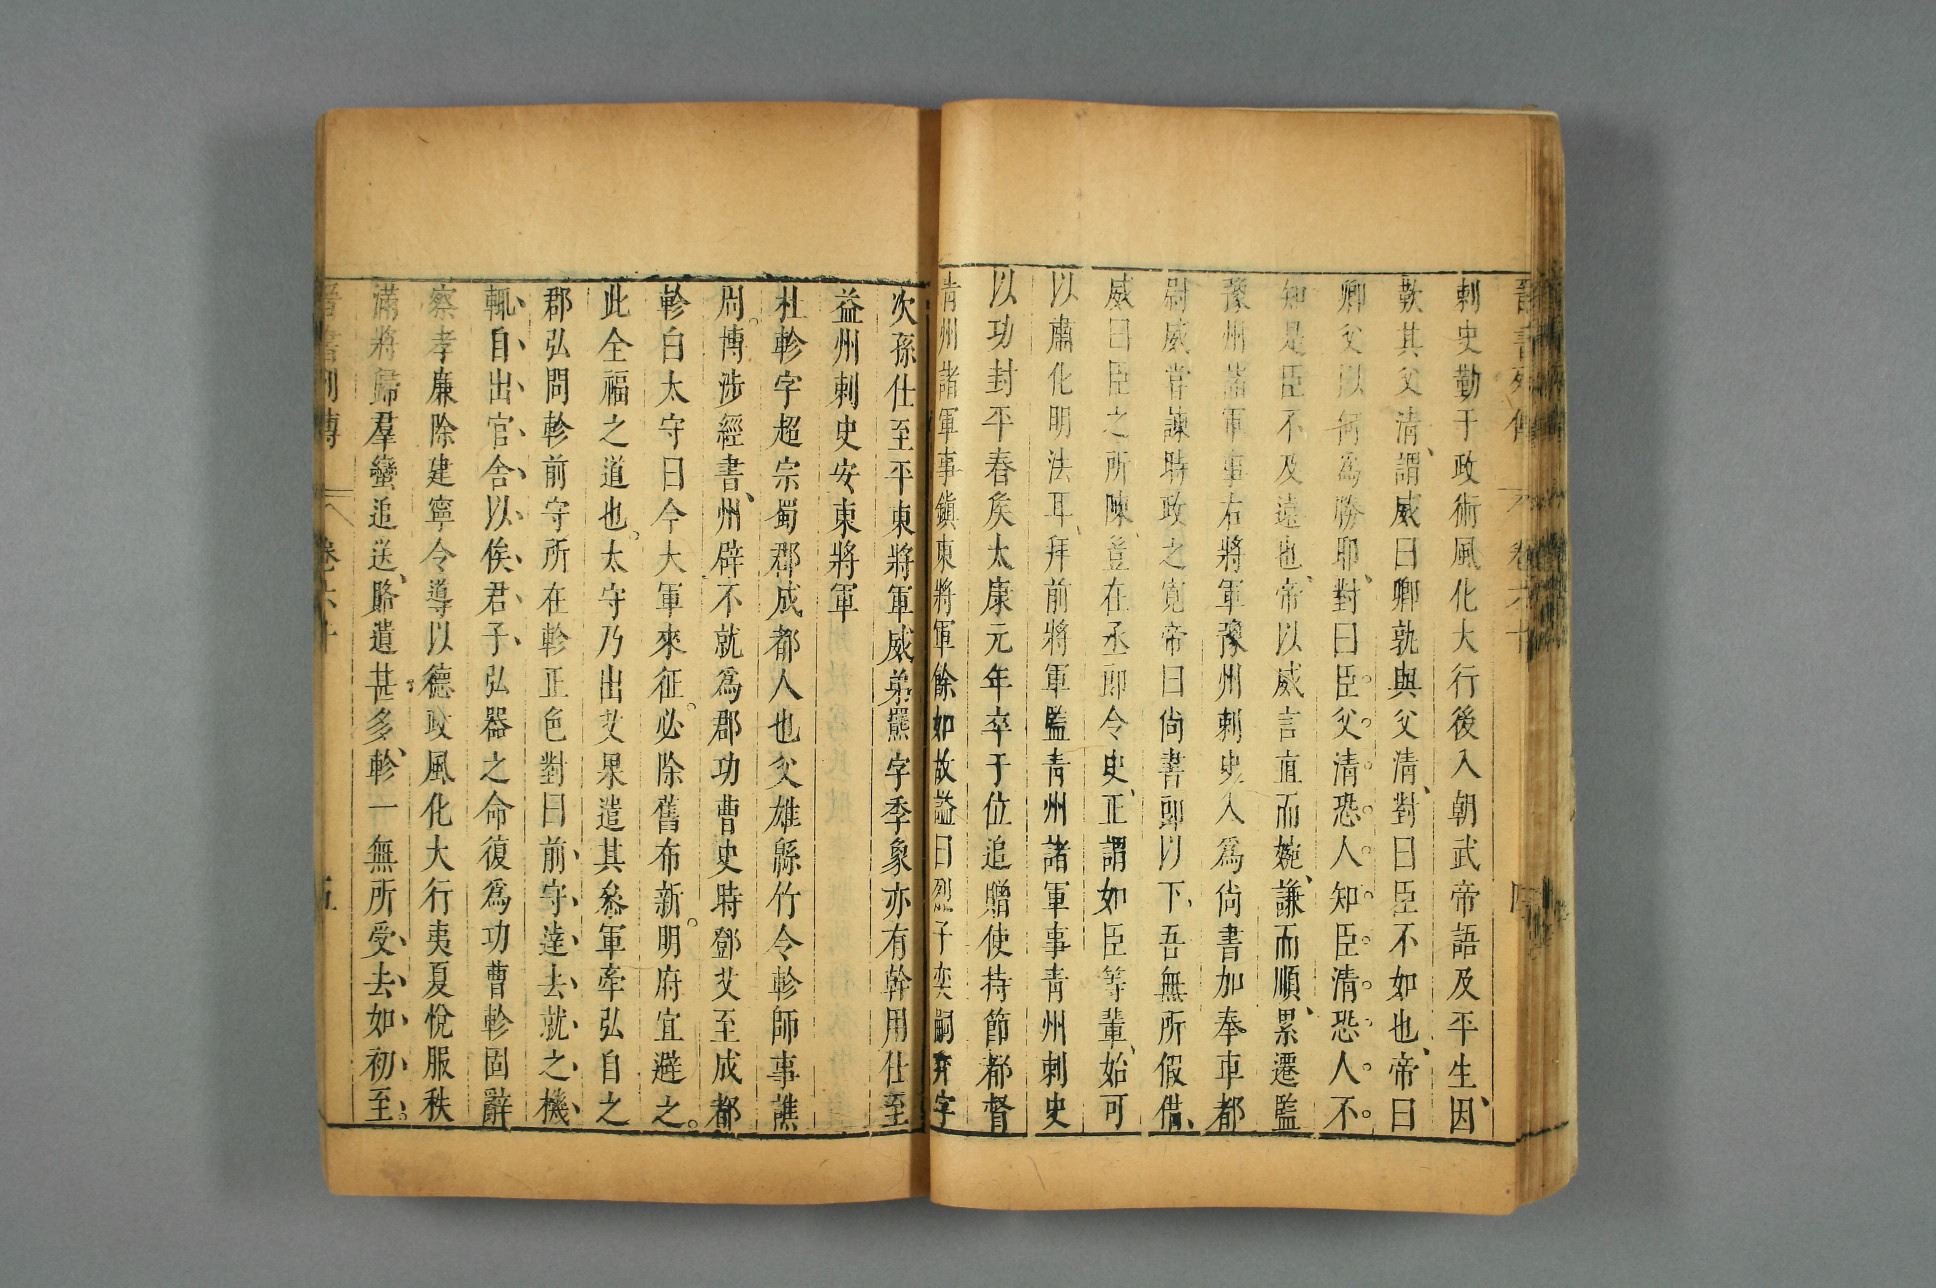 晉書列傳 卷六十
刺史勤于政術風化大行後入朝武帝語及平生、因
歎其父清、謂威曰卿孰與父清、對曰臣不如也、帝曰
卿父以何爲勝耶、對曰臣。父。清。恐。人。知。臣。清。恐。人。不。
知是臣不及遠也、帝以威言直而婉、謙而順、累遷監
豫州諸軍事右將軍豫州刺史入爲尙書加奉車都
尉威嘗諫時政之寬帝曰尙書郎以下、吾無所假借、
威曰臣之所陳、豈在丞郎令史、正謂如臣等輩、始可
以肅化明法耳、拜前將軍監青州諸軍事青州刺史
以功封平春矦太康元年卒于位追贈使持節都督
青州諸軍事鎮東將軍餘如故謚曰烈子奕嗣奕字
次孫仕至平東將軍威弟羆字季象亦有幹用仕至
益州刺史安東將軍
杜軫字超宗蜀郡成都人也父雄緜竹令軫師事譙
周。博涉經書、州辟不就爲郡功曹史時鄧艾至成都
軫白太守曰今大軍來征。必除舊布新。明府宜避之。
此全福之道也。太守乃出艾果遣其叅軍牽弘自之
郡弘問軫前守所在軫正色對曰前、守、達、去、就、之、機、
輒、自、出、官、舍、以、俟、君、子、弘器之命復爲功曹軫固辭
察孝廉除建寧令導以德政風化大行夷夏悅服秩
滿將歸羣蠻追送、賂遺甚多、軫一無所受、去、如、初、至。
晉書列傳 卷六十 五